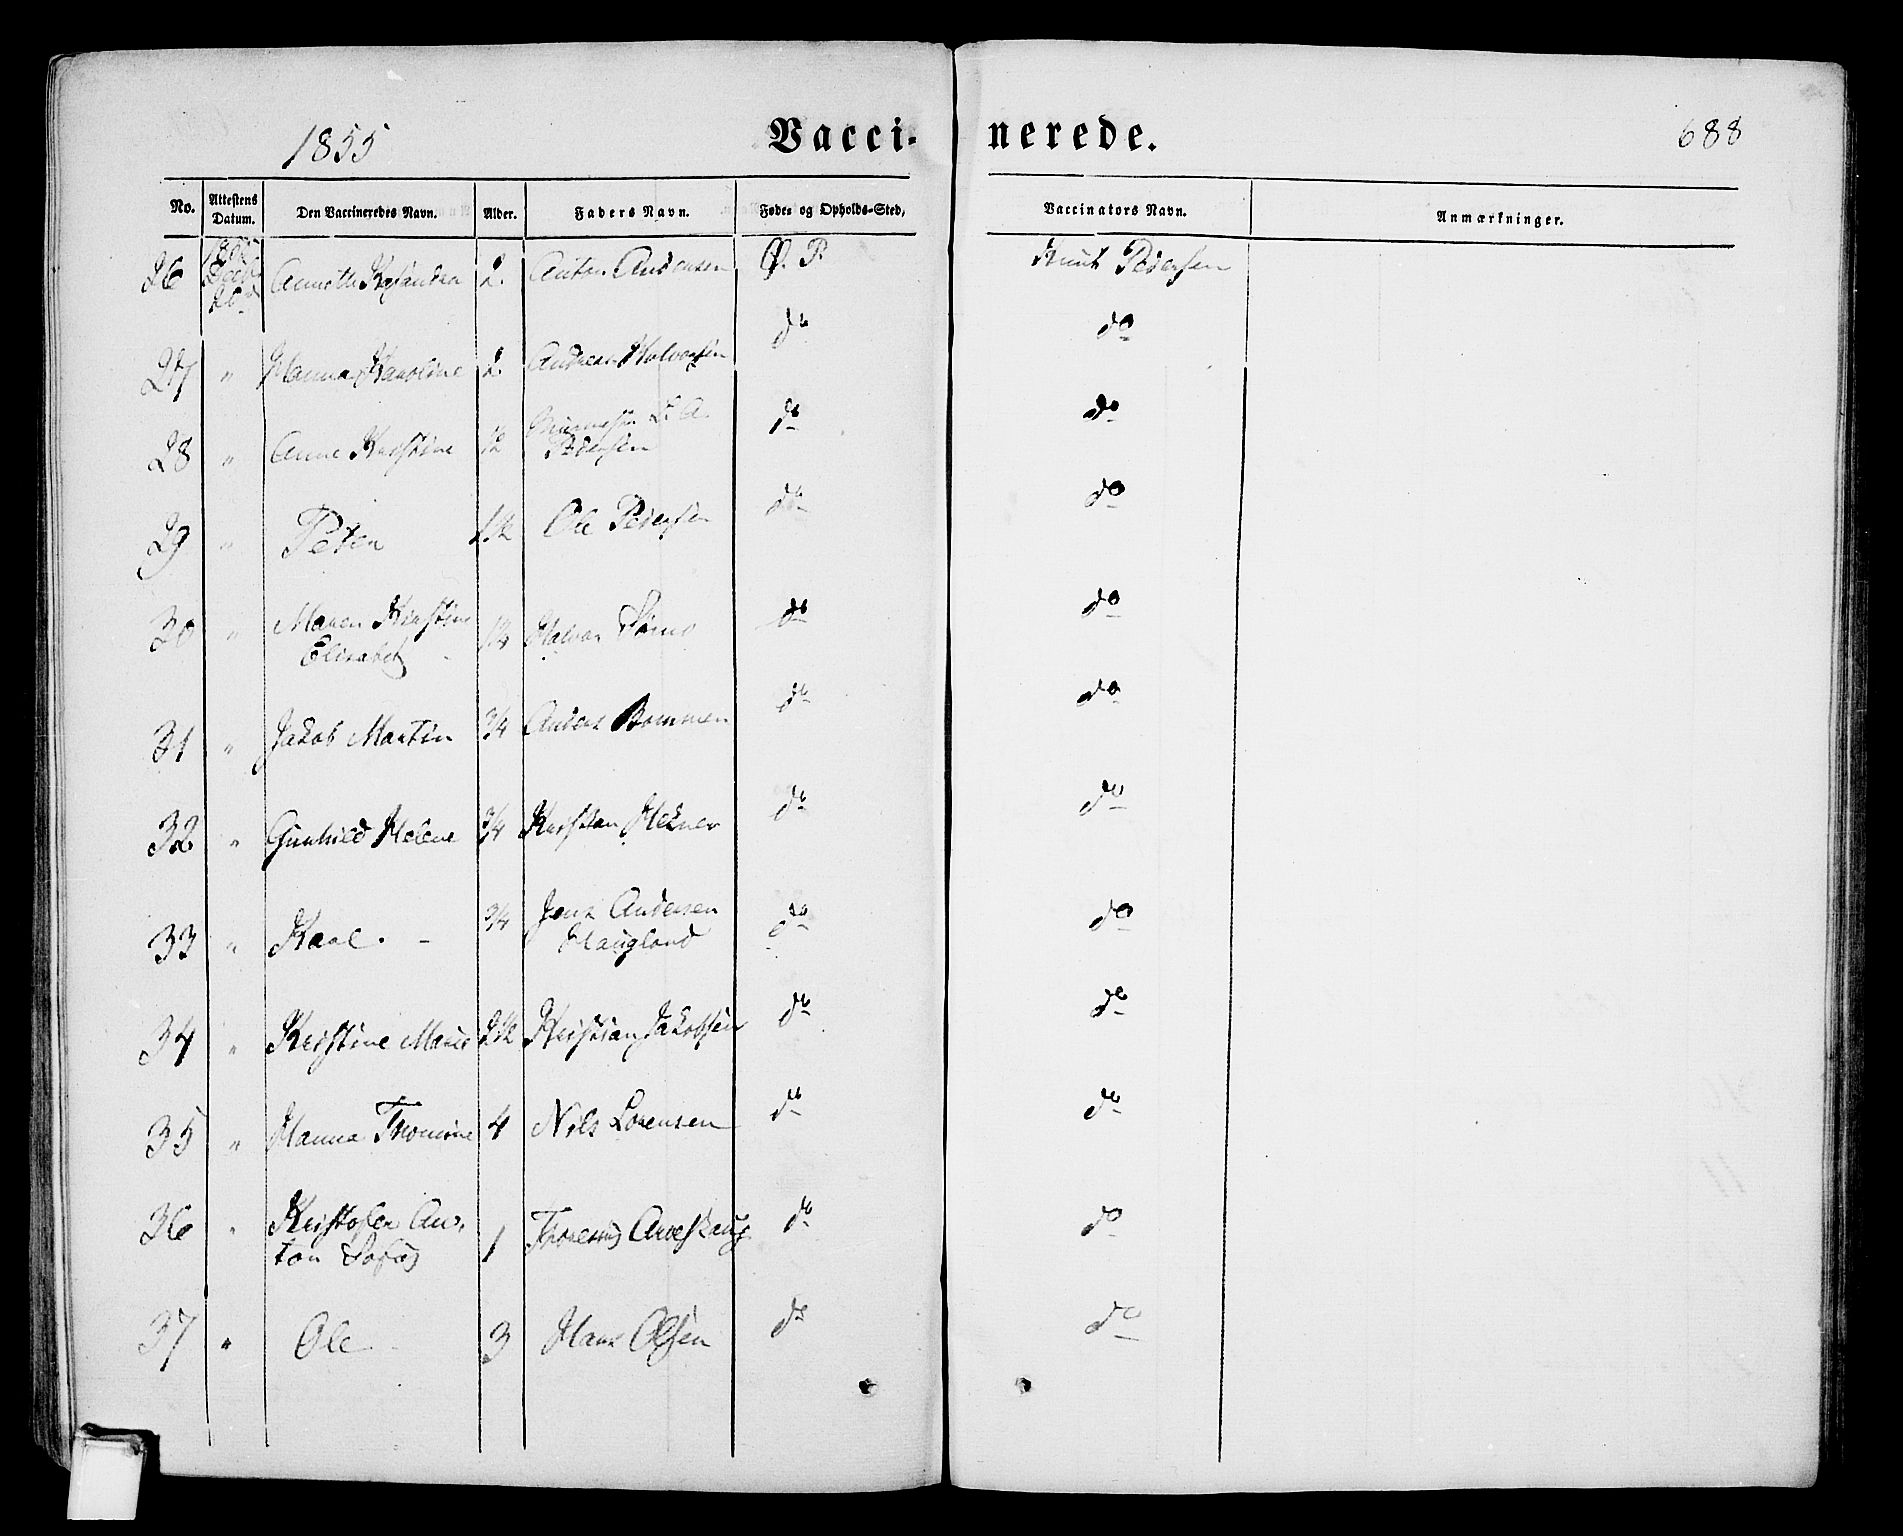 1855 Vaccinerede. 688
No. Attestens Datum. Den Vaccineredes Navn. Alder. Faders Navn. Føde- og Opholds-Sted, Vaccinators Navn. Anmærkninger.
26 Annette 2. Anton Andersen Ø. P. Knut Pedersen
27 " Hanna Karoline 2. Andreas Halvorsen do do
28 " Anne Kirstine 1/2 L. A.
Pedersen do do
29 " Peter 1 1/2 Ole Pedersen do do
30 " Maren Kirstine
Elisabet Halvor do do
31 " Jakob Martin 3/4 Anders Bommen do do
32 " Gunhild Helene 3/4 Kristian do do
33 " Karl. 3/4 Jens Andersen
Haugland do do
34 " Kristine Marie 2 1/2 Kristian Jakobsen do do
35 " Hanna Thomine 4 Nils Lorensen do do
36 " Kristofer An-
ton Sofus 1 do do
37 " Ole 3 Hans Olsen do do